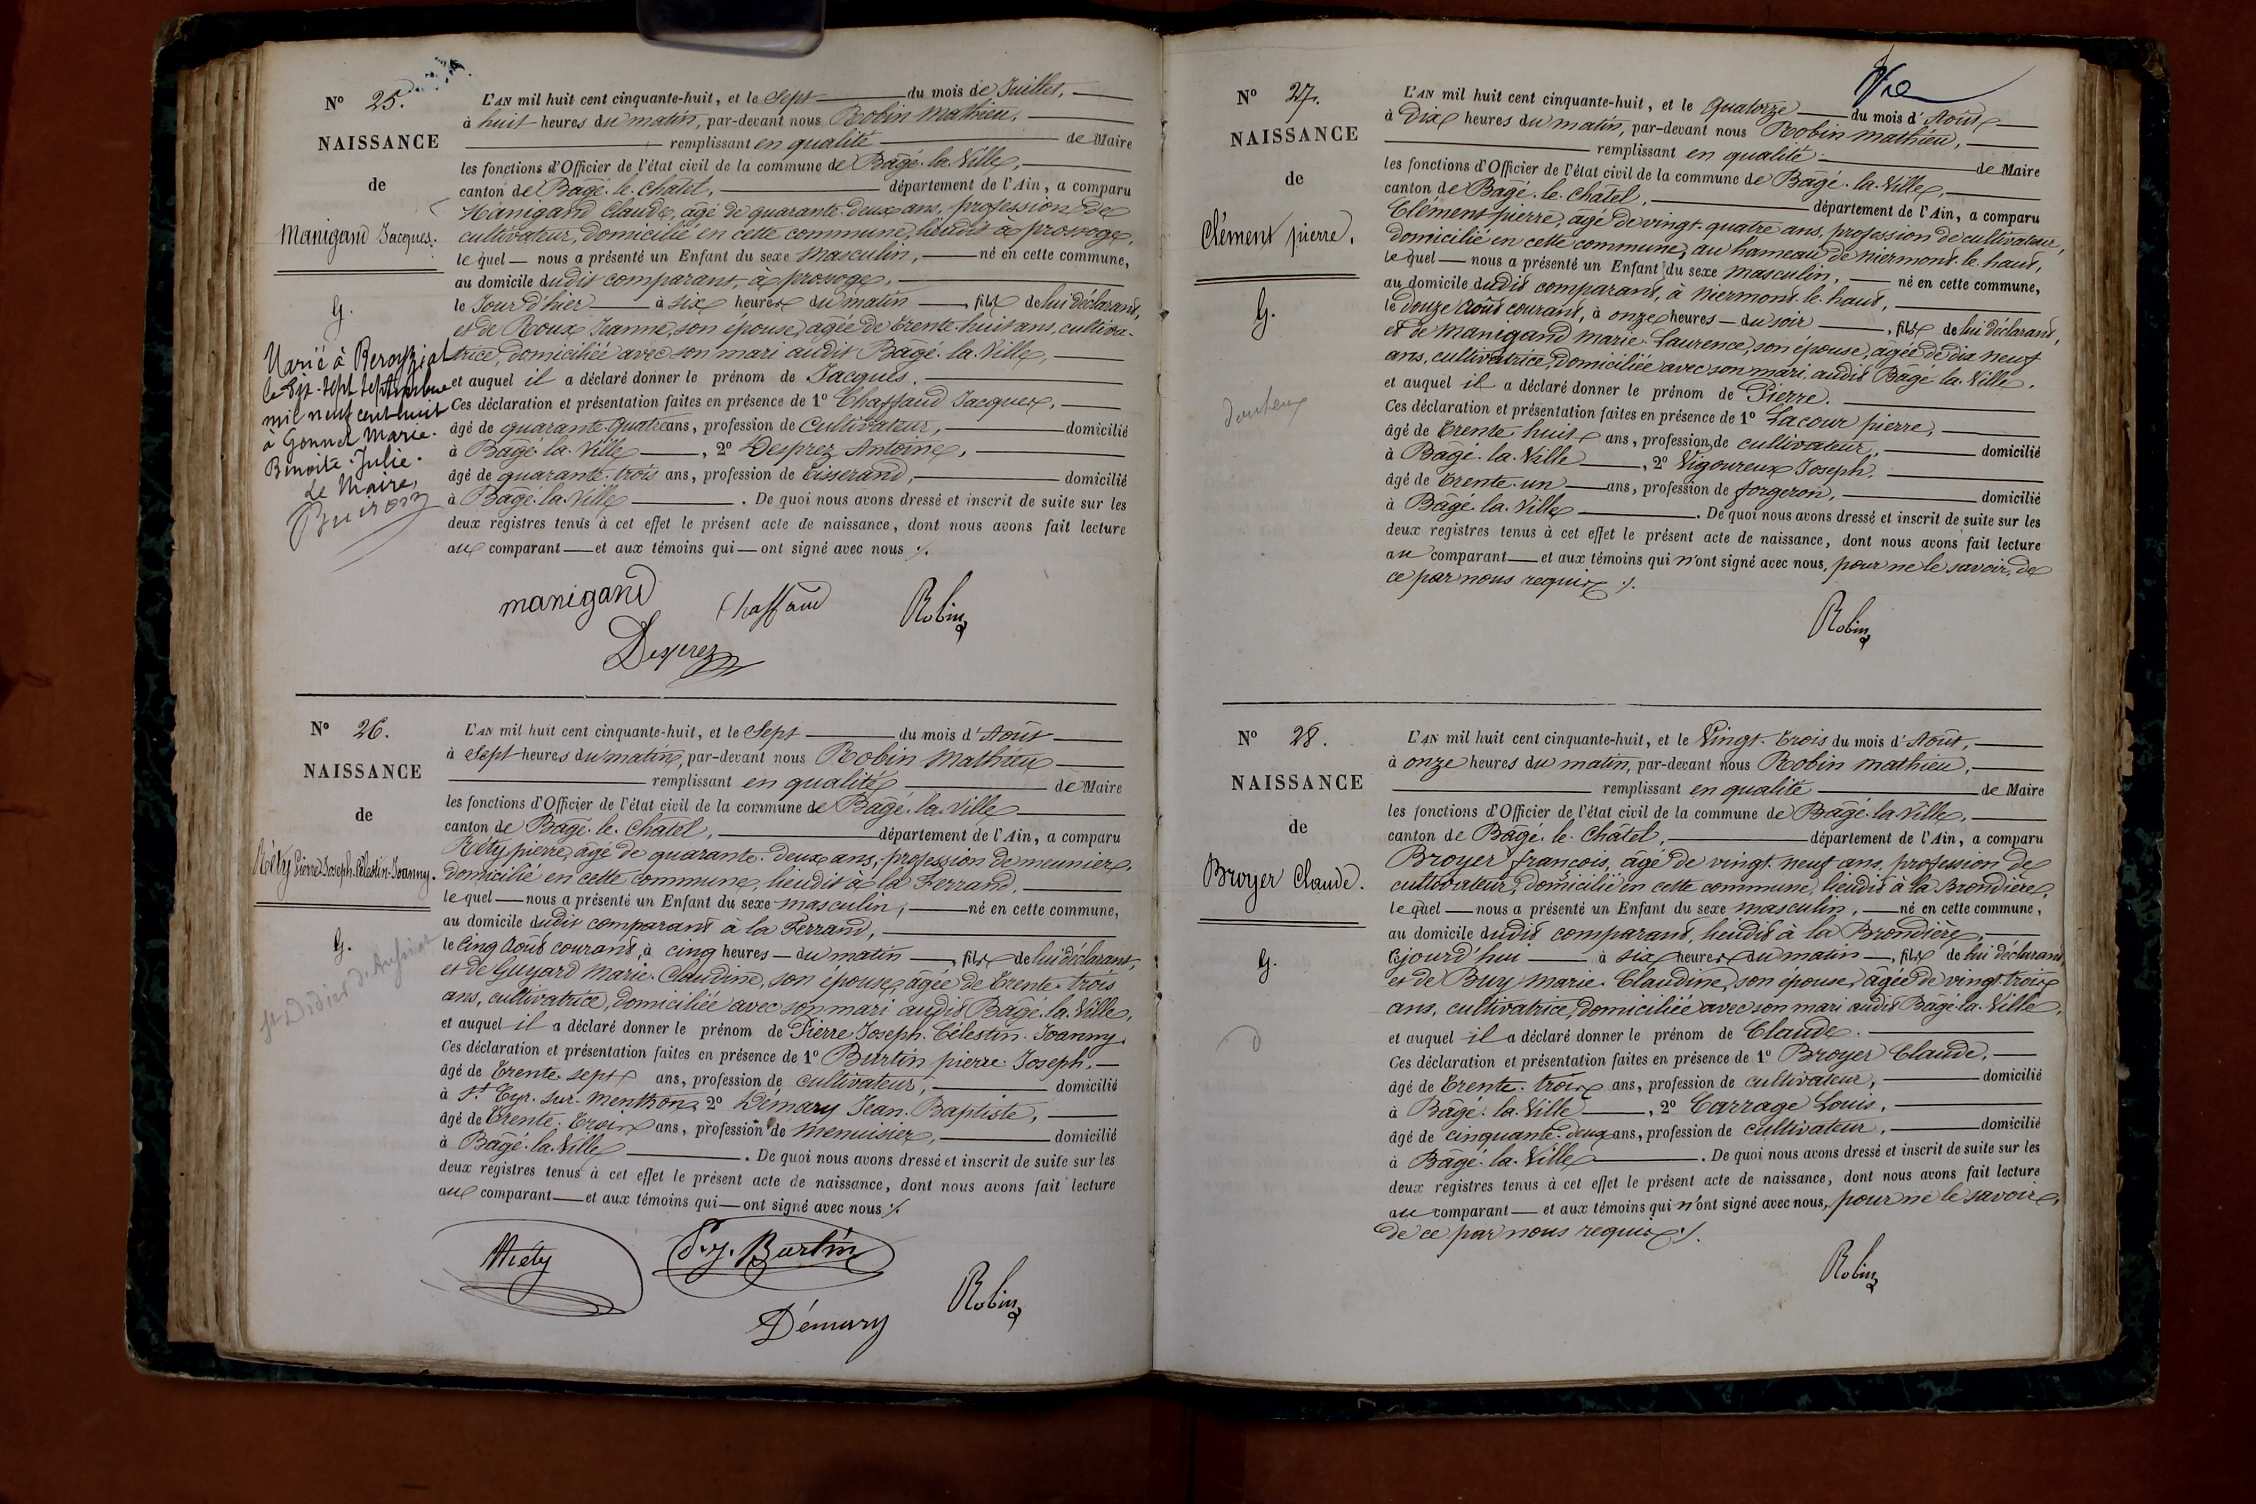 N° 25.
NAISSANCE
de
Manigand Jacques.
G.
Marié à Reyssjat
le dix-sept septembre
mil neuf cent huit
à Gonnet Marie.
Benoite. Julie.
Le Maire,
L'AN mil huit cent cinquante-huit, et le Sept du mois de Juillet,
à huit heures du matin, par-devant nous Robin Mathieu,
remplissant en qualité de Maire
les fonctions d'Officier de l'état civil de la commune de Bâgé-la-Ville,
canton de Bâgé-le-Chatel, département de l'Ain, a comparu
Manigand Claude, âgé de quarante-deux ans, profession de
cultivateur, domicilié en cette commune, lieudit à provoge,
le quel nous a présenté un Enfant du sexe masculin, né en cette commune,
au domicile dudit comparant, à provoge,
le Jour d'hier à six heures du matin, fils de lui déclarant,
et de Roux Jeanne, son épouse, âgée de trente-huit ans, cultiva-
trice, domiciliée avec son mari audit Bâgé-la-Ville,
et auquel il a déclaré donner le prénom de Jacques.
Ces déclaration et présentation faites en présence de 1° Chaffaud Jacques,
âgé de quarante-quatre ans, profession de cultivateur, domicilié
à Bâgé-la-Ville, 2° Desprez Antoine,
âgé de quarante-trois ans, profession de tisserand, domicilié
à Bâgé-la-Ville. De quoi nous avons dressé et inscrit de suite sur les
deux registres tenus à cet effet le présent acte de naissance, dont nous avons fait lecture
aux comparant et aux témoins qui ont signé avec nous ./.
manigand Chaffaud Robin
Desprez
N° 26.
NAISSANCE
de
Réty Pierre Joseph-Célestin-Joanny.
G.
L'AN mil huit cent cinquante-huit, et le Sept du mois d'Août
à Sept heures du matin, par-devant nous Robin Mathieu
remplissant en qualité de Maire
les fonctions d'Officier de l'état civil de la commune de Bâgé-la-Ville
canton de Bâgé-le-Chatel, département de l'Ain, a comparu
Réty pierre, âgé de quarante-deux ans, profession de meunier,
domicilié en cette commune, lieudit à la Ferrand,
le quel nous a présenté un Enfant du sexe masculin, né en cette commune,
au domicile dudit comparant à la Ferrand,
le cinq Août courant, à cinq heures du matin, fils de lui déclarant,
et de Guyard Marie-Claudine, son épouse, âgée de trente-trois
ans, cultivatrice, domiciliée avec son mari audit Bâgé-la-Ville,
et auquel il a déclaré donner le prénom de Pierre-Joseph-Célestin-Joanny.
Ces déclaration et présentation faites en présence de 1° Burtin pierre-Joseph,
âgé de trente-sept ans, profession de cultivateur, domicilié
à St Cyr-sur-menthon, 2° Démary Jean-Baptiste,
âgé de trente-trois ans, profession de menuisier, domicilié
à Bâgé-la-Ville. De quoi nous avons dressé et inscrit de suite sur les
deux registres tenus à cet effet le présent acte de naissance, dont nous avons fait lecture
aux comparant et aux témoins qui ont signé avec nous ./.
Réty P.J. Burtin
Robin
Démary
N° 27.
NAISSANCE
de
Clément pierre.
G.
L'AN mil huit cent cinquante-huit, et le Quatorze du mois d'Août
à Dix heures du matin, par-devant nous Robin Mathieu,
remplissant en qualité de Maire
les fonctions d'Officier de l'état civil de la commune de Bâgé-la-Ville,
canton de Bâgé-le-Chatel, département de l'Ain, a comparu
Clément pierre, âgé de vingt-quatre ans, profession de cultivateur,
domicilié en cette commune, au hameau de niermont-le-haut,
le quel nous a présenté un Enfant du sexe masculin, né en cette commune,
au domicile dudit comparant, à niermont-le-haut,
le Douze Août courant, à onze heures du soir, fils de lui déclarant,
et de Manigand Marie-Laurence, son épouse, âgée de dix neuf
ans, cultivatrice, domiciliée avec son mari audit Bâgé-la-Ville,
et auquel il a déclaré donner le prénom de Pierre.
Ces déclaration et présentation faites en présence de 1° Lacour pierre,
âgé de trente-huit ans, profession de cultivateur, domicilié
à Bâgé-la-Ville, 2° Vigoureux Joseph,
âgé de trente-un ans, profession de forgeron, domicilié
à Bâgé-la-Ville. De quoi nous avons dressé et inscrit de suite sur les
deux registres tenus à cet effet le présent acte de naissance, dont nous avons fait lecture
au comparant et aux témoins qui n'ont signé avec nous, pour ne le savoir, de
ce par nous requis ./.
Robin
N° 28.
NAISSANCE
de
Broyer Claude.
G.
L'AN mil huit cent cinquante-huit, et le Vingt-trois du mois d'Août,
à onze heures du matin, par-devant nous Robin Mathieu,
remplissant en qualité de Maire
les fonctions d'Officier de l'état civil de la commune de Bâgé-la-Ville,
canton de Bâgé-le-Chatel, département de l'Ain, a comparu
Broyer françois, âgé de vingt-neuf ans, profession de
cultivateur, domicilié en cette commune, lieudit à la Brondière,
le quel nous a présenté un Enfant du sexe masculin, né en cette commune,
au domicile dudit comparant, lieudit à la Brondière,
cejourd'hui à six heures du matin, fils de lui déclarant,
et de Buy Marie-Claudine, son épouse, âgée de vingt-trois
ans, cultivatrice, domiciliée avec son mari audit Bâgé-la-Ville,
et auquel il a déclaré donner le prénom de Claude.
Ces déclaration et présentation faites en présence de 1° Broyer Claude,
âgé de trente-trois ans, profession de cultivateur, domicilié
à Bâgé-la-Ville, 2° Carrage Louis,
âgé de cinquante-deux ans, profession de cultivateur, domicilié
à Bâgé-la-Ville. De quoi nous avons dressé et inscrit de suite sur les
deux registres tenus à cet effet le présent acte de naissance, dont nous avons fait lecture
au comparant et aux témoins qui n'ont signé avec nous, pour ne le savoir,
de ce par nous requis ./.
Robin